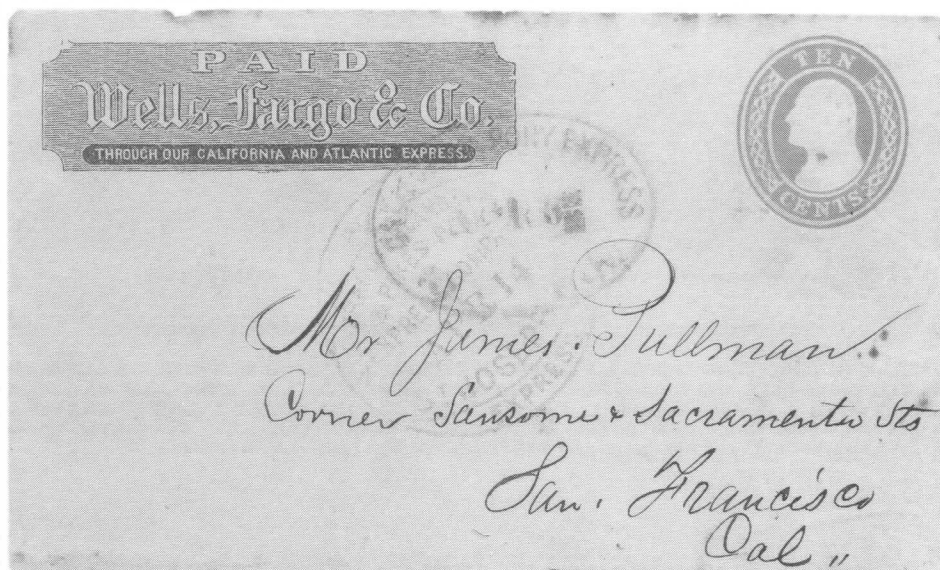 PAID
Wells, Fargo & Co.
THROUGH OUR CALIFORNIA AND ATLANTIC EXPRESS.
TEN
CENTS
PONY EXPRESS
14
Mr James. Pullman.
Corner Sansome & Sacramento Sts
San. Francisco
Cal "